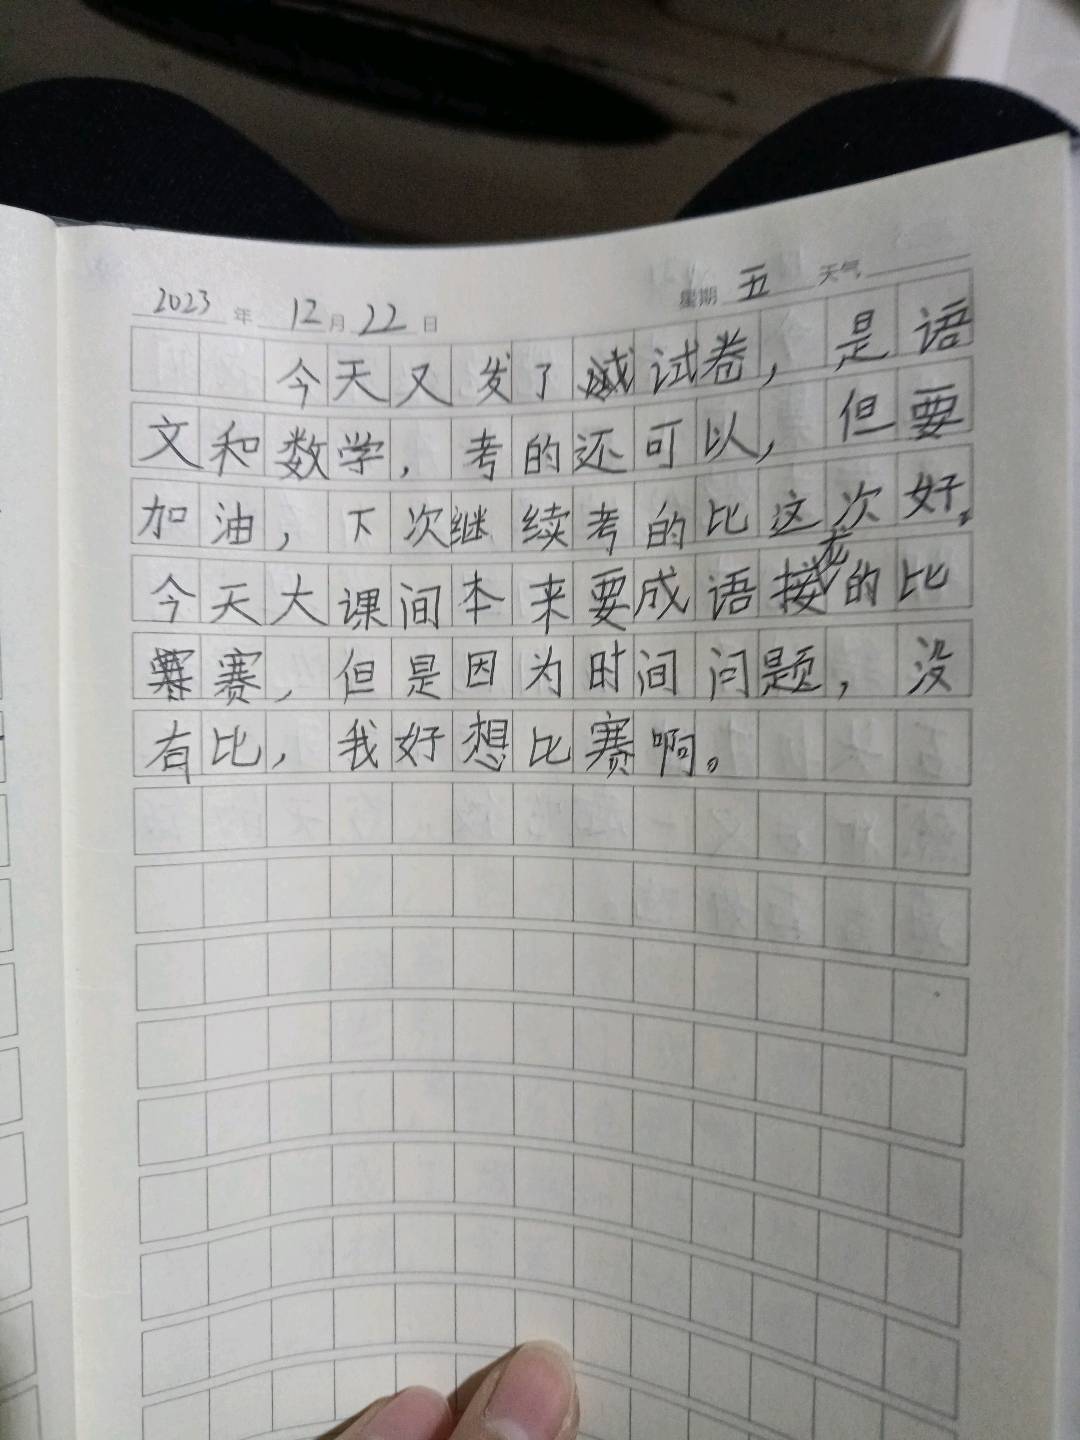 2023 年 12 月 22 日 星期 五 天气
今天又发了试卷，是语
文和数学，考的还可以，但要
加油，下次继续考的比这次好。
今天大课间本来要成语接龙的比
赛，但是因为时间问题，没
有比，我好想比赛啊。